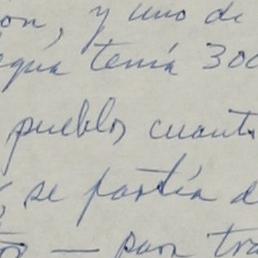 on, y uno de
egua tenía 300
pueblos cuant
se partía d
— para tra